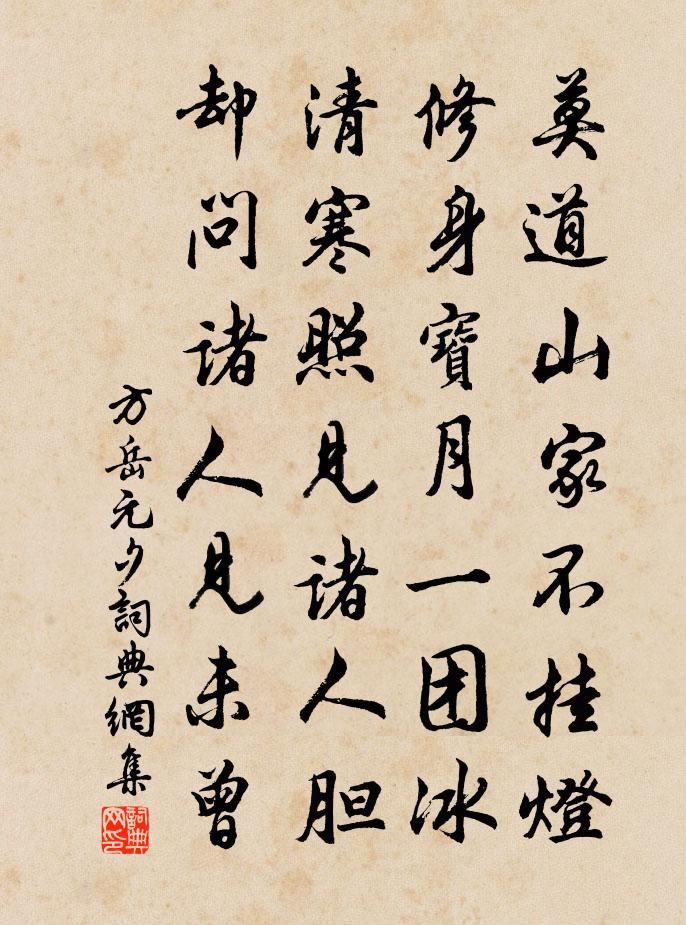 莫道山家不挂燈
修身寶月一团冰
清寒照見诸人胆
却问诸人見未曾
方岳元夕詞典網集
詞典網印